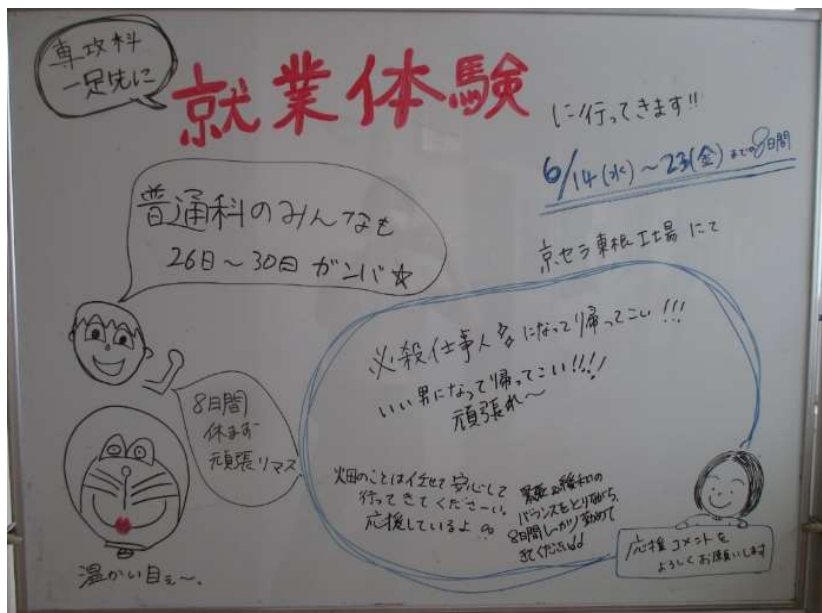 専攻科
一足先に
就業体験
に行ってきます!!
6/14(水)～23(金)までの8日間
京セラ東根工場にて
普通科のみんなも
26日～30日 ガンバ☆
8日間
休まず
頑張りマス
必殺仕事人になって帰ってこい!!!
いい男になって帰ってこい!!!!
頑張れ～
畑のことは任せて安心して
行ってきてくださーい。
応援しているよ
緊張と緩和の
バランスをとりながら、
8日間しっかり勤めて
きてください
応援コメントを
よろしくお願いします
温かい目ぇ～。